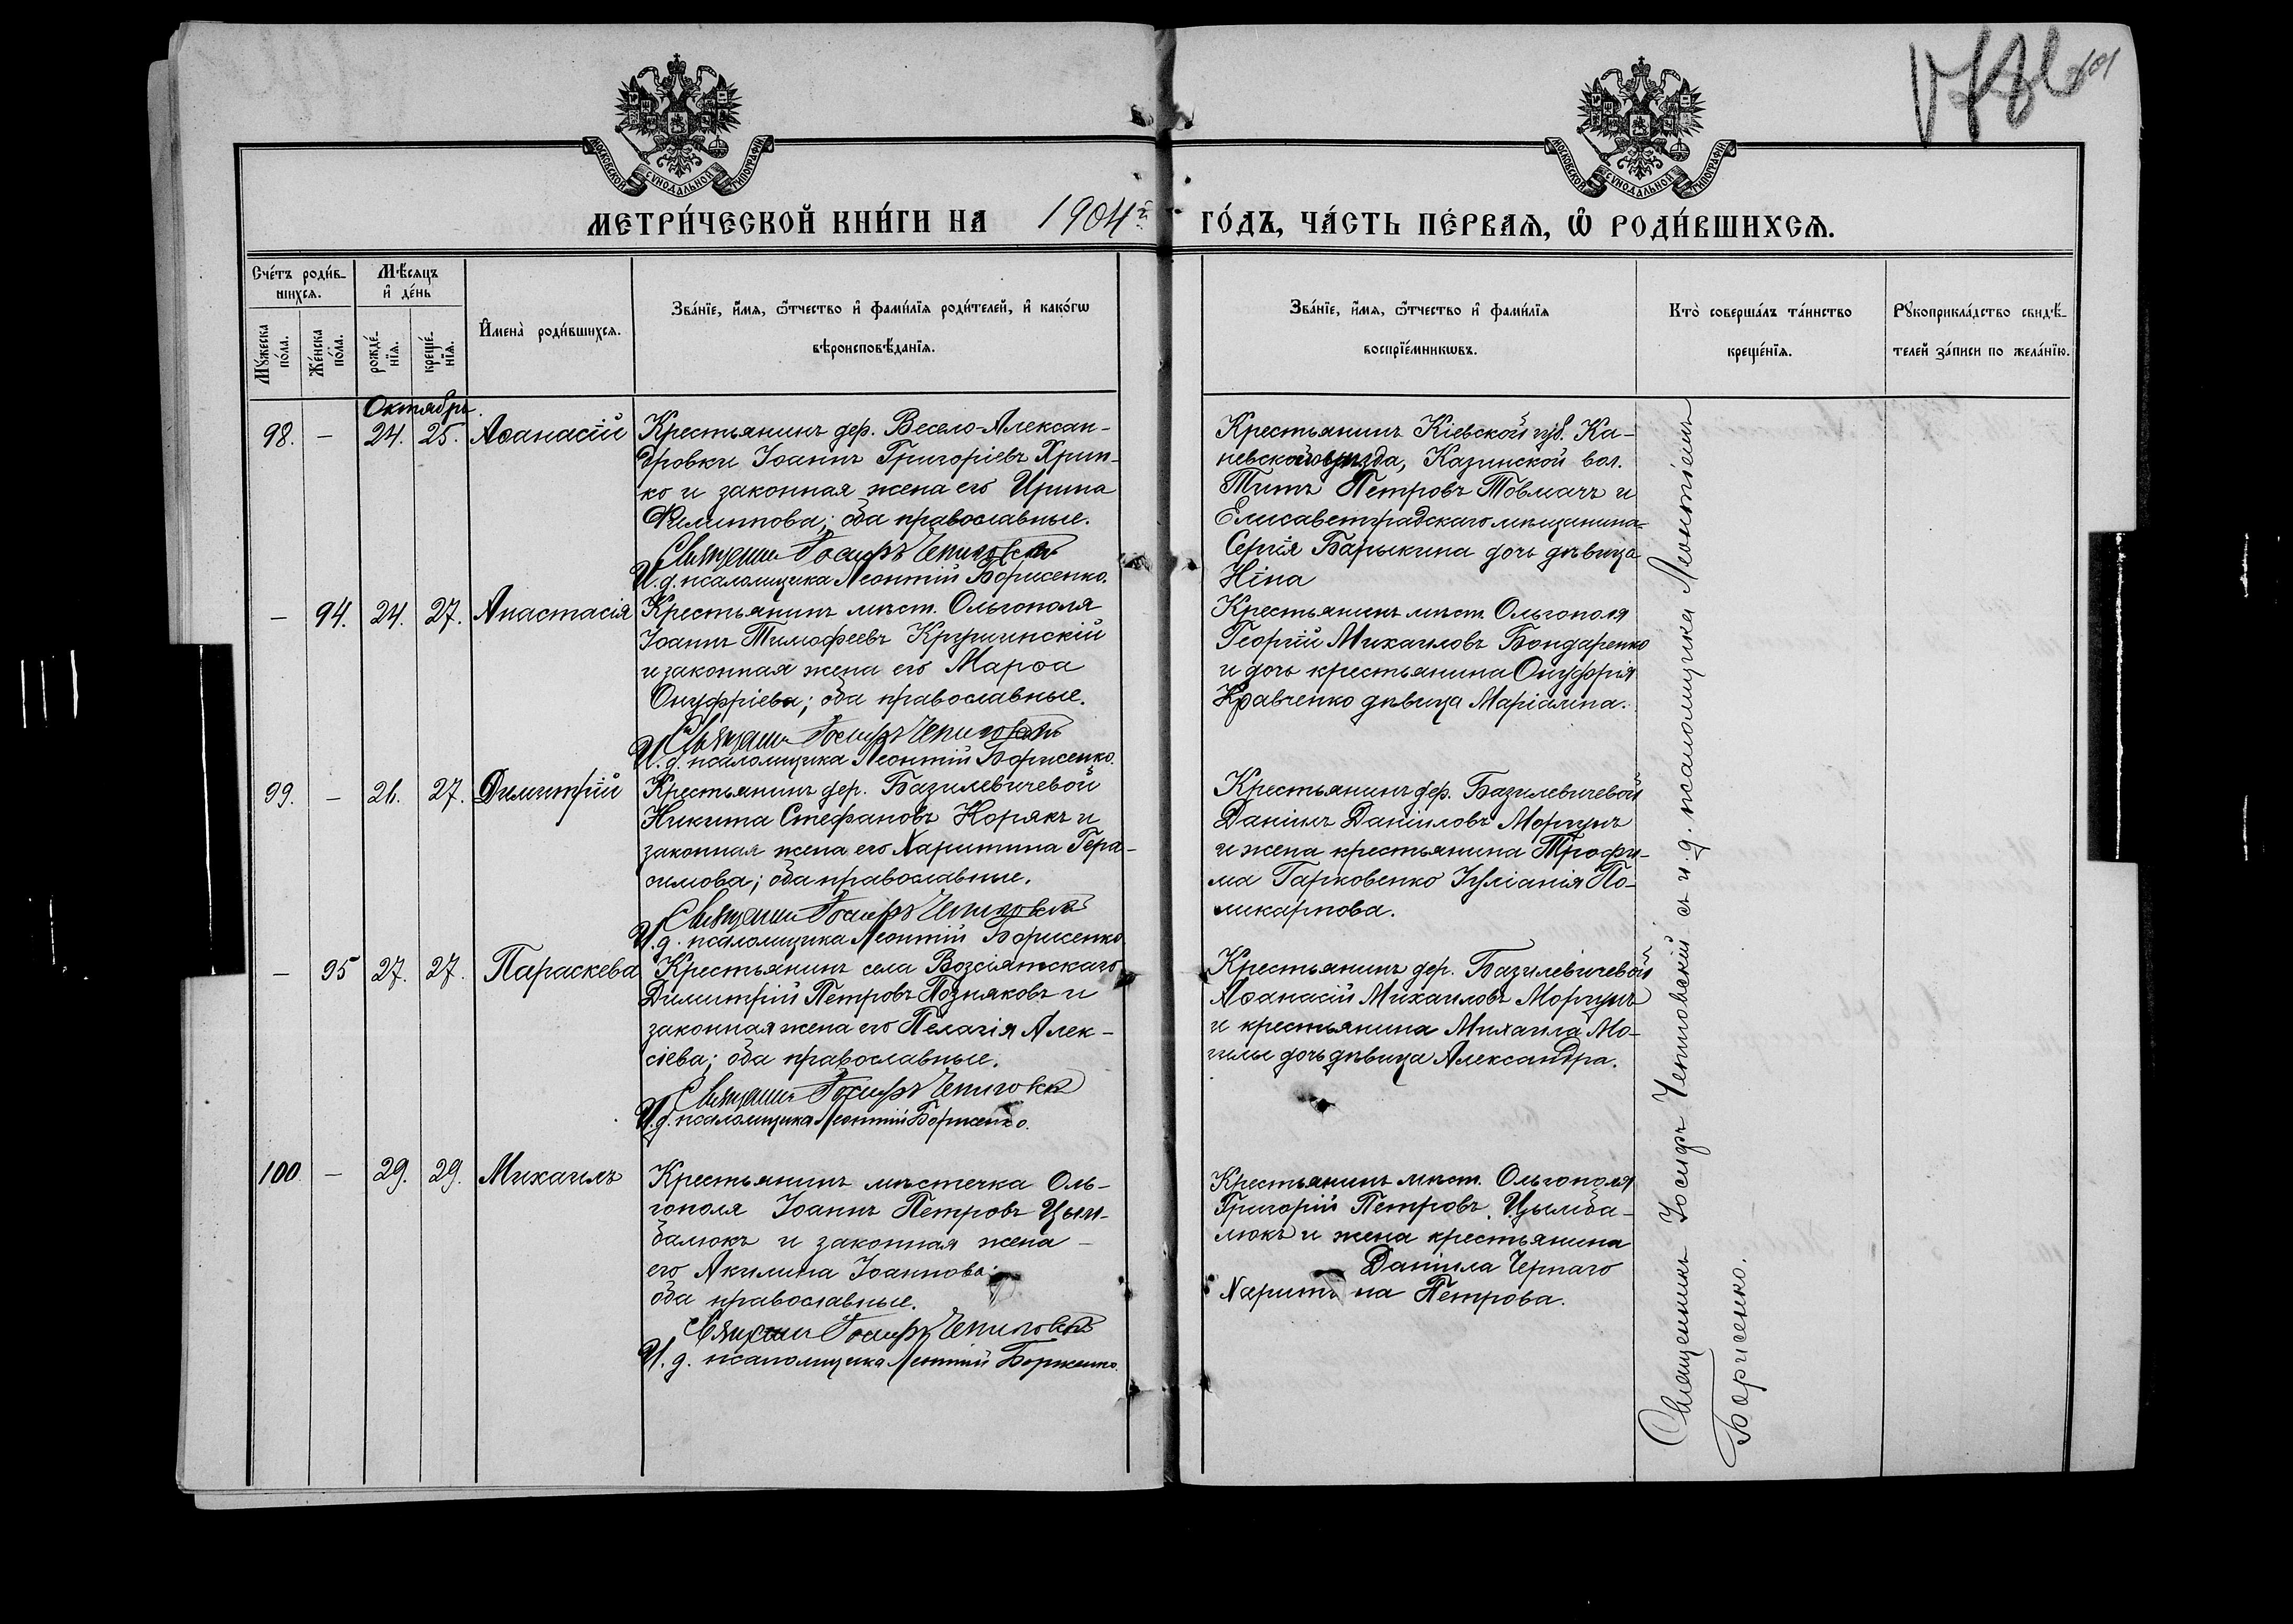 101
МОСКОВСКОЙ СѴНОДАЛЬНОЙ ТИПОГРАФІИ
МОСКОВСКОЙ СѴНОДАЛЬНОЙ ТИПОГРАФІИ
МЕТРИ́ЧЕСКОЙ КНИ́ГИ НА 1904й ГО́ДЪ, ЧА́СТЬ ПЕ́РВАѦ, Ѡ҆ РОДИ́ВШИХСѦ.
Сче́тъ роди́в-
шихсѧ.
Мꙋ́жеска по́ла.
Же́нска по́ла.
Мѣ́сѧцъ
и҆ де́нь
рожде́-
нїѧ.
креще́-
нїѧ.
И҆мена̀ роди́вшихсѧ.
Зва́нїе, и҆́мѧ, ѻ҆́тчество и҆ фами́лїѧ роди́телей, и҆ како́гѡ
вѣроисповѣ́данїѧ.
Зва́нїе, и҆́мѧ, ѻ҆́тчество и҆ фами́лїѧ
воспрїе́мникѡвъ.
Кто̀ соверша́лъ та́инство
креще́нїѧ.
Рꙋкоприкла́дство свидѣ́-
телей за́писи по жела́нїю.
Октябрь.
98. — 24. 25. Аѳанасій
Крестьянинъ дер. Весело-Алексан-
дровки Іоаннъ Григоріевъ Хрип-
ко и законная жена его Ирина
Филиппова; оба православные.
Священникъ Іосифъ Чепиговскій
И. д. псаломщика Леонтій Борисенко.
Крестьянинъ Кіевской губ. Ка-
невского уѣзда, Казинской вол.
Титъ Петровъ Товмачъ и
Елисаветградскаго мѣщанина
Сергія Барыкина дочь дѣвица
Нина
— 94. 24. 27. Анастасія
Крестьянинъ мѣст. Ольгополя
Іоаннъ Тимофеевъ Кручинскій
и законная жена его Марѳа
Онуфріева; оба православные.
Священникъ Іосифъ Чепиговскій
И. д. псаломщика Леонтій Борисенко.
Крестьянинъ мѣст. Ольгополя
Георгій Михаиловъ Бондаренко
и дочь крестьянина Онуфрія
Кравченко дѣвица Маріамна.
99. — 26. 27. Димитрій
Крестьянинъ дер. Базилевичевой
Никита Стефановъ Корякъ и
законная жена его Харитина Гера-
симова; оба православные.
Священникъ Іосифъ Чепиговскій
И. д. псаломщика Леонтій Борисенко
Крестьянинъ дер. Базилевичевой
Даніилъ Даніиловъ Моргунъ
и жена крестьянина Трофи-
ма Гарковенко Іуліанія По-
ликарпова.
— 95 27. 27. Параскева
Крестьянинъ села Возсіятскаго
Димитрій Петровъ Позняковъ и
законная жена его Пелагія Алек-
сіева; оба православные.
Священникъ Іосифъ Чепиговскій
И. д. псаломщика Леонтій Борисенко.
Крестьянинъ дер. Базилевичевой
Аѳанасій Михаиловъ Моргунъ
и крестьянина Михаила Мо-
гилы дочь дѣвица Александра.
100. — 29. 29. Михаилъ
Крестьянинъ мѣстечка Оль-
гополя Іоаннъ Петровъ Цым-
балюкъ и законная жена —
его Акилина Іоаннова;
оба православные.
Священникъ Іосифъ Чепиговскій
И. д. псаломщика Леонтій Борисенко.
Крестьянинъ мѣст. Ольгополя
Григорій Петровъ Цымба-
люкъ и жена крестьянина
Даніила Чернаго
Харитина Петрова.
Священникъ Іосифъ Чепиговскій съ и. д. псаломщика Леонтіемъ
Борисенко.